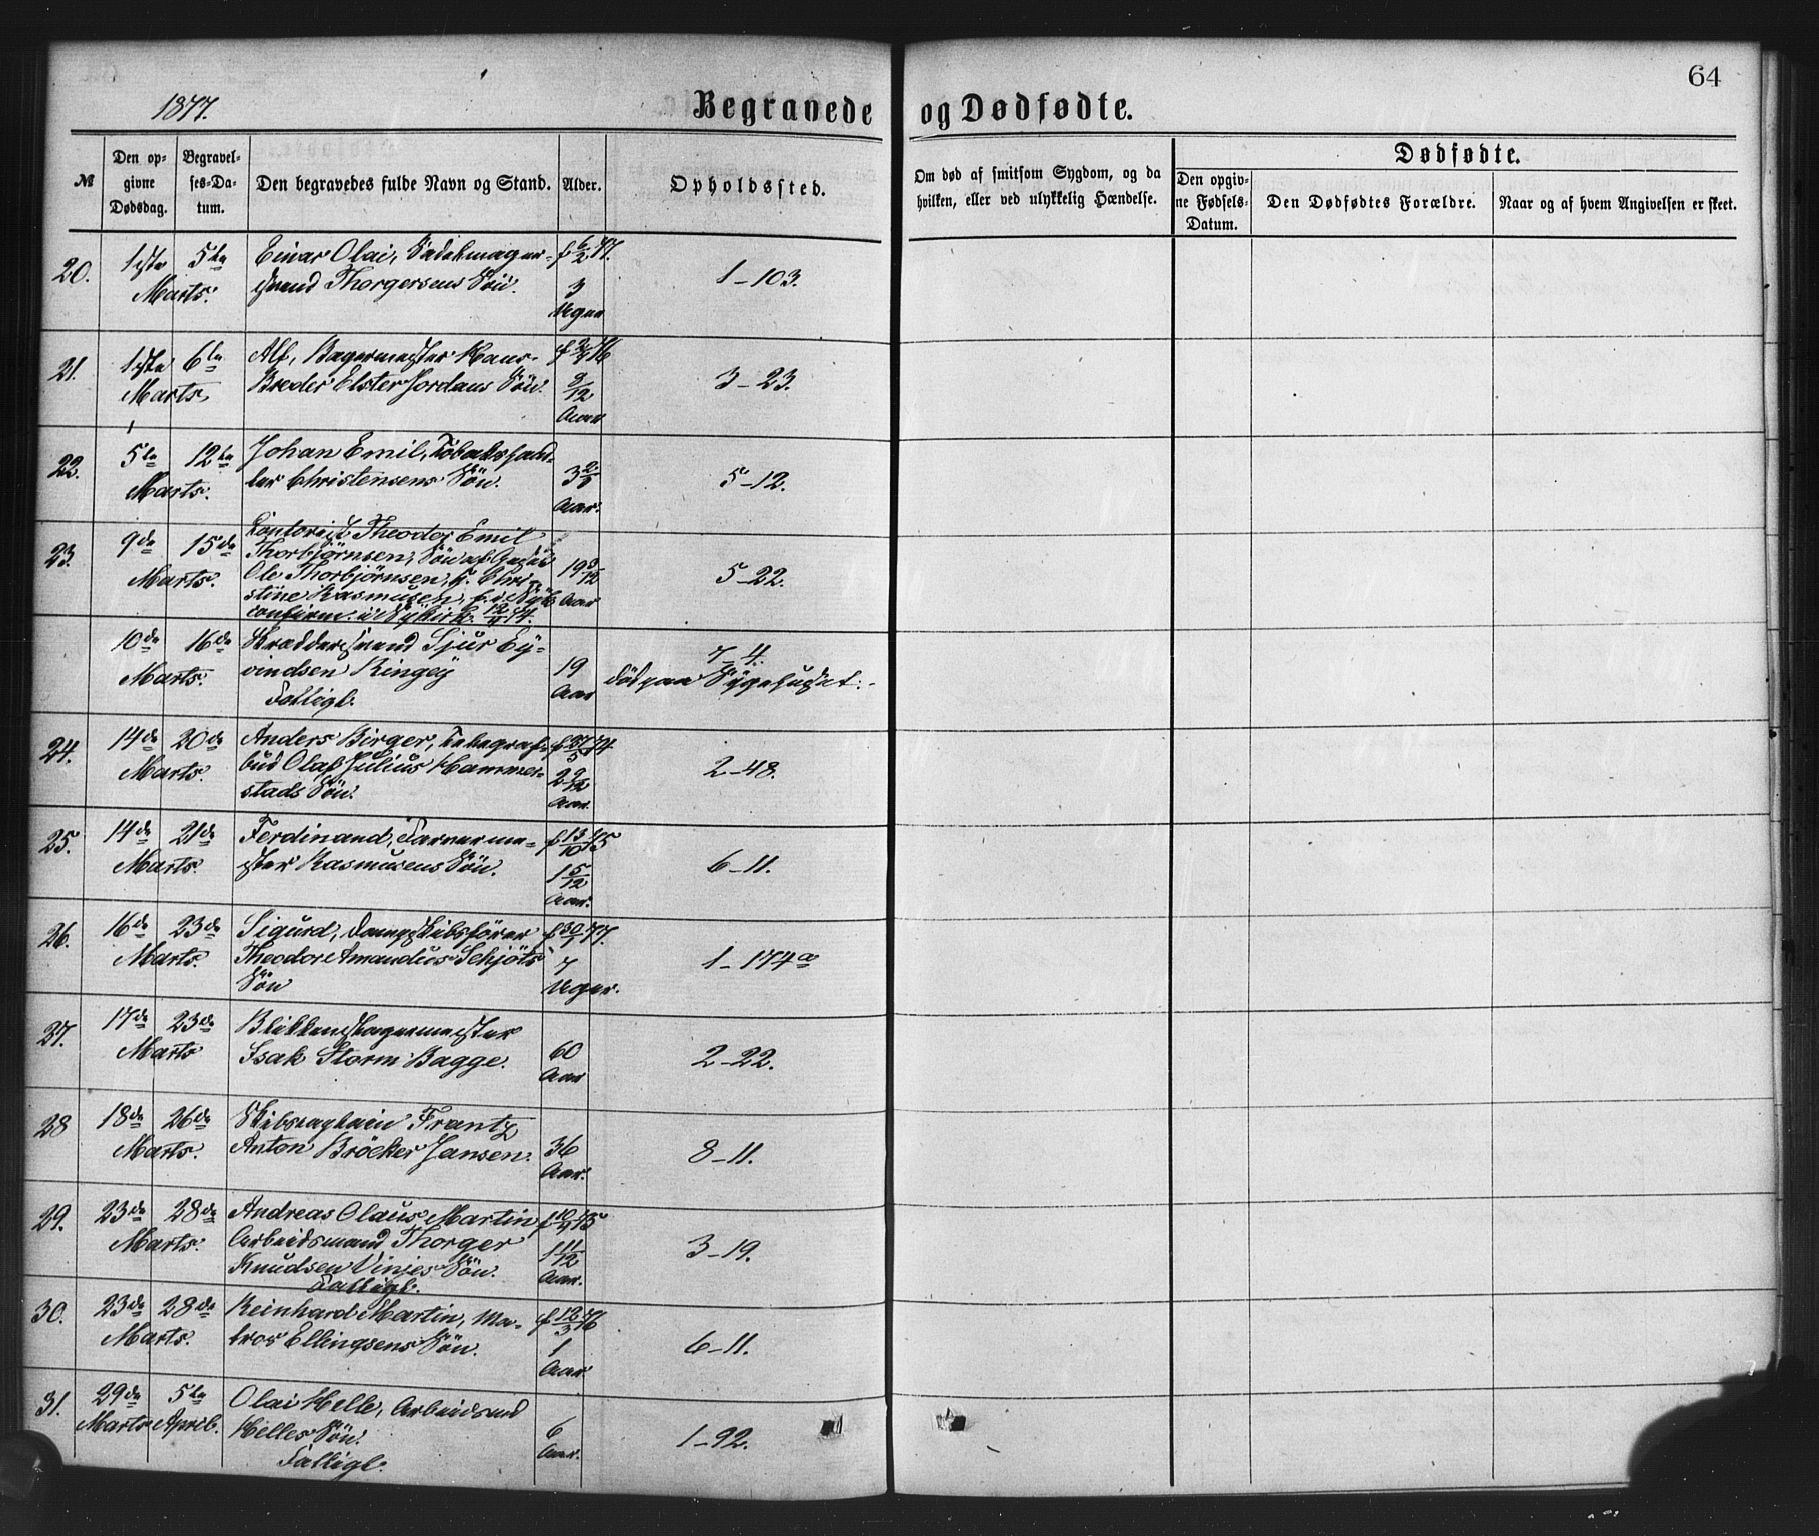 64
1877.
Begravede og Dødfødte.
№
Den opgivne Dødsdag.
Begravelses-Datum.
Den begravedes fulde Navn og Stand.
Alder.
Opholdssted.
Om død af smitsom Sygdom, og da hvilken, eller ved ulykkelig Hændelse.
Dødfødte.
Den opgivne Fødsels-Datum.
Den Dødfødtes Forældre.
Naar og af hvem Angivelsen er skeet.
20. 1ste Marts. 5te Einar Olai, Sadelmager- f 6/2 77.
svend Thorgersens Søn. 3 Uger 1-103.
21. 1ste Marts. 6te Alf, Bagermester Hans f 2/4 76
Breder Elster Jordans Søn. 9/12 Aar 3-23.
22. 5te Marts. 12te Johan Emil, Tobakshand-
ler Christensens Søn. Aar. 5-12.
23. 9de Marts. 15de Contorist Theodor Emil
Thorbjørnsen, Søn af
Ole Thorbjørnsen, Chri-
stine Rasmusen,
confirm. i Nykirk. 19 Aar 5-22.
10de Marts. 16de Skræddersvend Sjur Ey- 7-4.
vindsen Ringøy 19 Aar død paa Sygehuset.
Fattigl.
24. 14de Marts. 20de Anders Birger, Telegraf- f 27/5 74
bud Olaf Julius Hammer- 2 9/12 Aar. 2-48.
stads Søn.
25. 14de Marts. 21de Ferdinand, Farverme- f 13/10 75
ster Rasmusens Søn. 1 5/12 Aar. 6-11.
26. 16de Marts. 23de Sigurd, Dampskibsfører f 30/1 77.
Theodor Amandus Schjøts 7 Uger. 1-174a
Søn
27. 17de Marts 23de Blikkenslagermester
Isak Storm Bagge. 60 Aar 2-22.
28 18de Marts. 26de Skibscaptein Frantz
Anton Bröcker Jansen. 36 Aar. 8-11.
29. 23de Marts. 28de Andreas Olaus Martin f 10/4 75
Arbeidsmand Thorger 1 11/12 Aar. 3-19.
Knudsen Vinjes Søn.
Fattigl.
30. 23de Marts. 28de Reinhard Martin, Ma- f 12/3 76
tros Ellingsens Søn. 1 Aar 6-11.
31. 29de Marts 5te April. Olai Helle, Arbeidsmd
Helles Søn. 6 Aar. 1-92.
Fattigl.